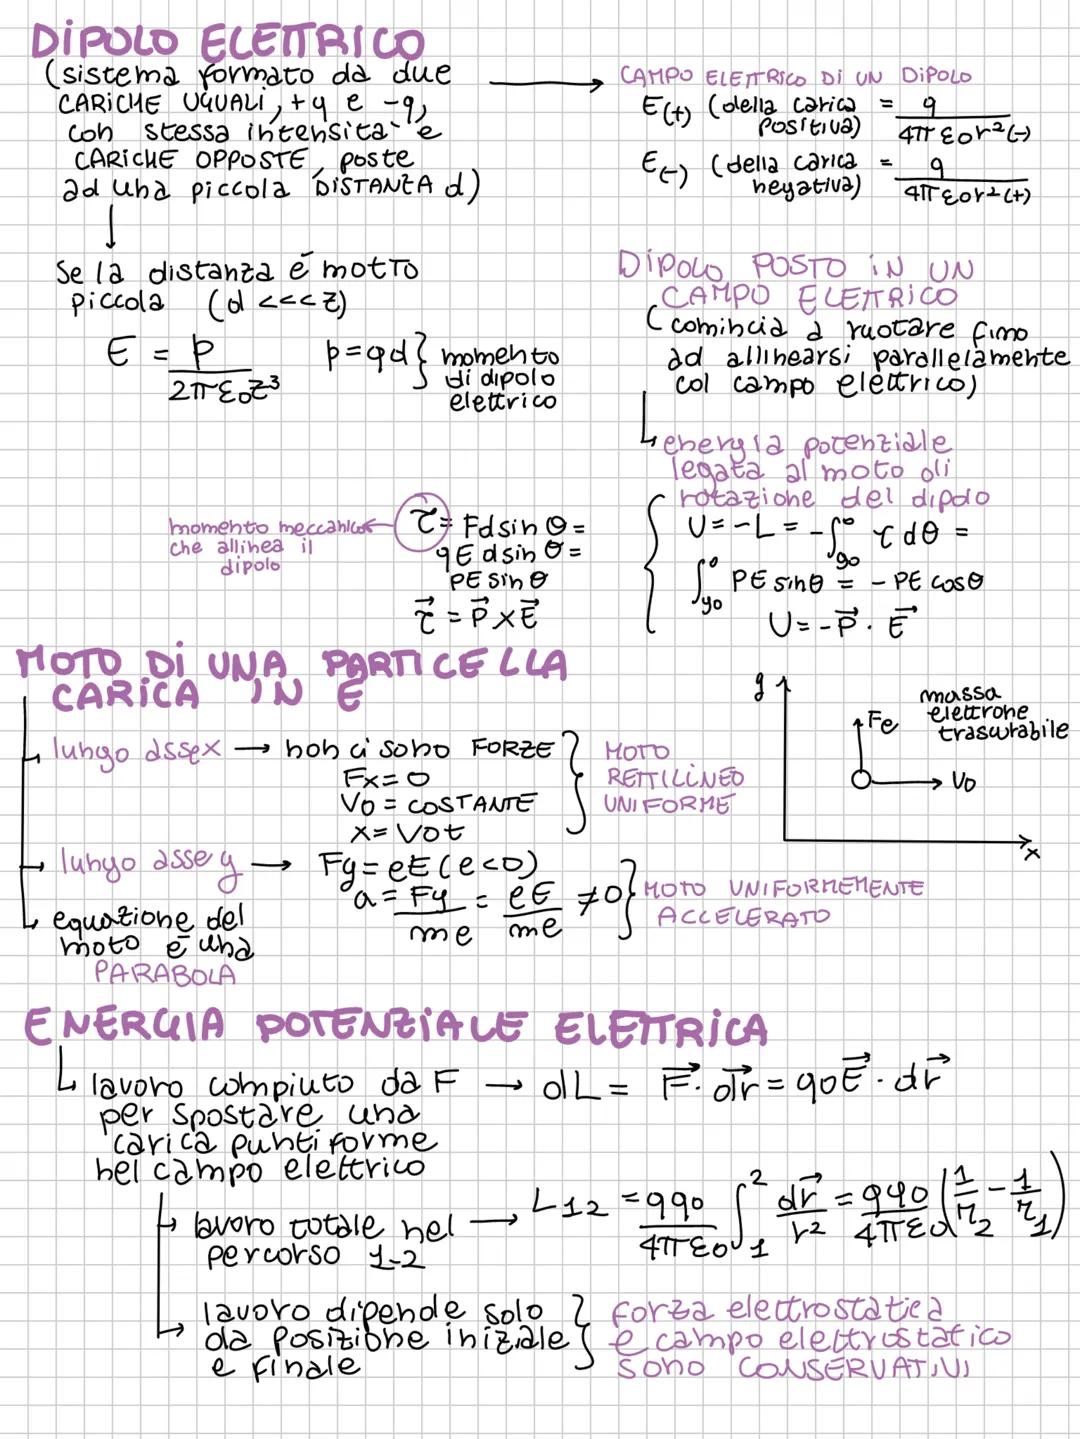 DIPOLO ELETTRICO
(sistema formato da due
CARICHE UGUALI, +q e -q,
con stessa intensità e
CARICHE OPPOSTE, poste
ad una piccola DISTANZA d)
CAMPO ELETTRICO DI UN DIPOLO
E(+) (della carica positiva) = q / 4πε0r²(-)
E(-) (della carica negativa) = q / 4πε0r²(+)
Se la distanza é motto
piccola (d <<< z)
E = p / 2πε0z³
p=qd} momento
di dipolo
elettrico
DIPOLO POSTO IN UN
CAMPO ELETTRICO
(comincia a ruotare fino
ad allinearsi parallelamente
col campo elettrico)
energia potenziale
legata al moto di
rotazione del dipolo
momento meccanico
che allinea il
dipolo
τ = Fdsin θ =
qEdsin θ =
PE sin θ
τ⃗ = P⃗ x E⃗
U = -L = -∫₉₀⁰ τ dθ =
∫₉₀⁰ PE sinθ = - PE cosθ
U = -P⃗ · E⃗
MOTO DI UNA PARTICELLA
CARICA IN E
lungo asse x → non ci sono FORZE
Fx=0
V0 = COSTANTE
x= V0t
MOTO
RETTILINEO
UNIFORME
y
massa
elettrone
trascurabile
Fe
V0
x
lungo asse y → Fy= eE (e<0)
a = Fy / me = eE / me ≠0
MOTO UNIFORMEMENTE
ACCELERATO
equazione del
moto é una
PARABOLA
ENERGIA POTENZIALE ELETTRICA
lavoro compiuto da F → dL = F⃗ · dr⃗ = q0E⃗ · dr⃗
per spostare una
carica puntiforme
nel campo elettrico
lavoro totale nel
percorso 1-2
L12 = qq0 / 4πε0 ∫₁² dr⃗ / r² = qq0 / 4πε0 (1/r2 - 1/r1)
lavoro dipende solo
da posizione iniziale
e finale
forza elettrostatica
e campo elettrostatico
sono CONSERVATIVI